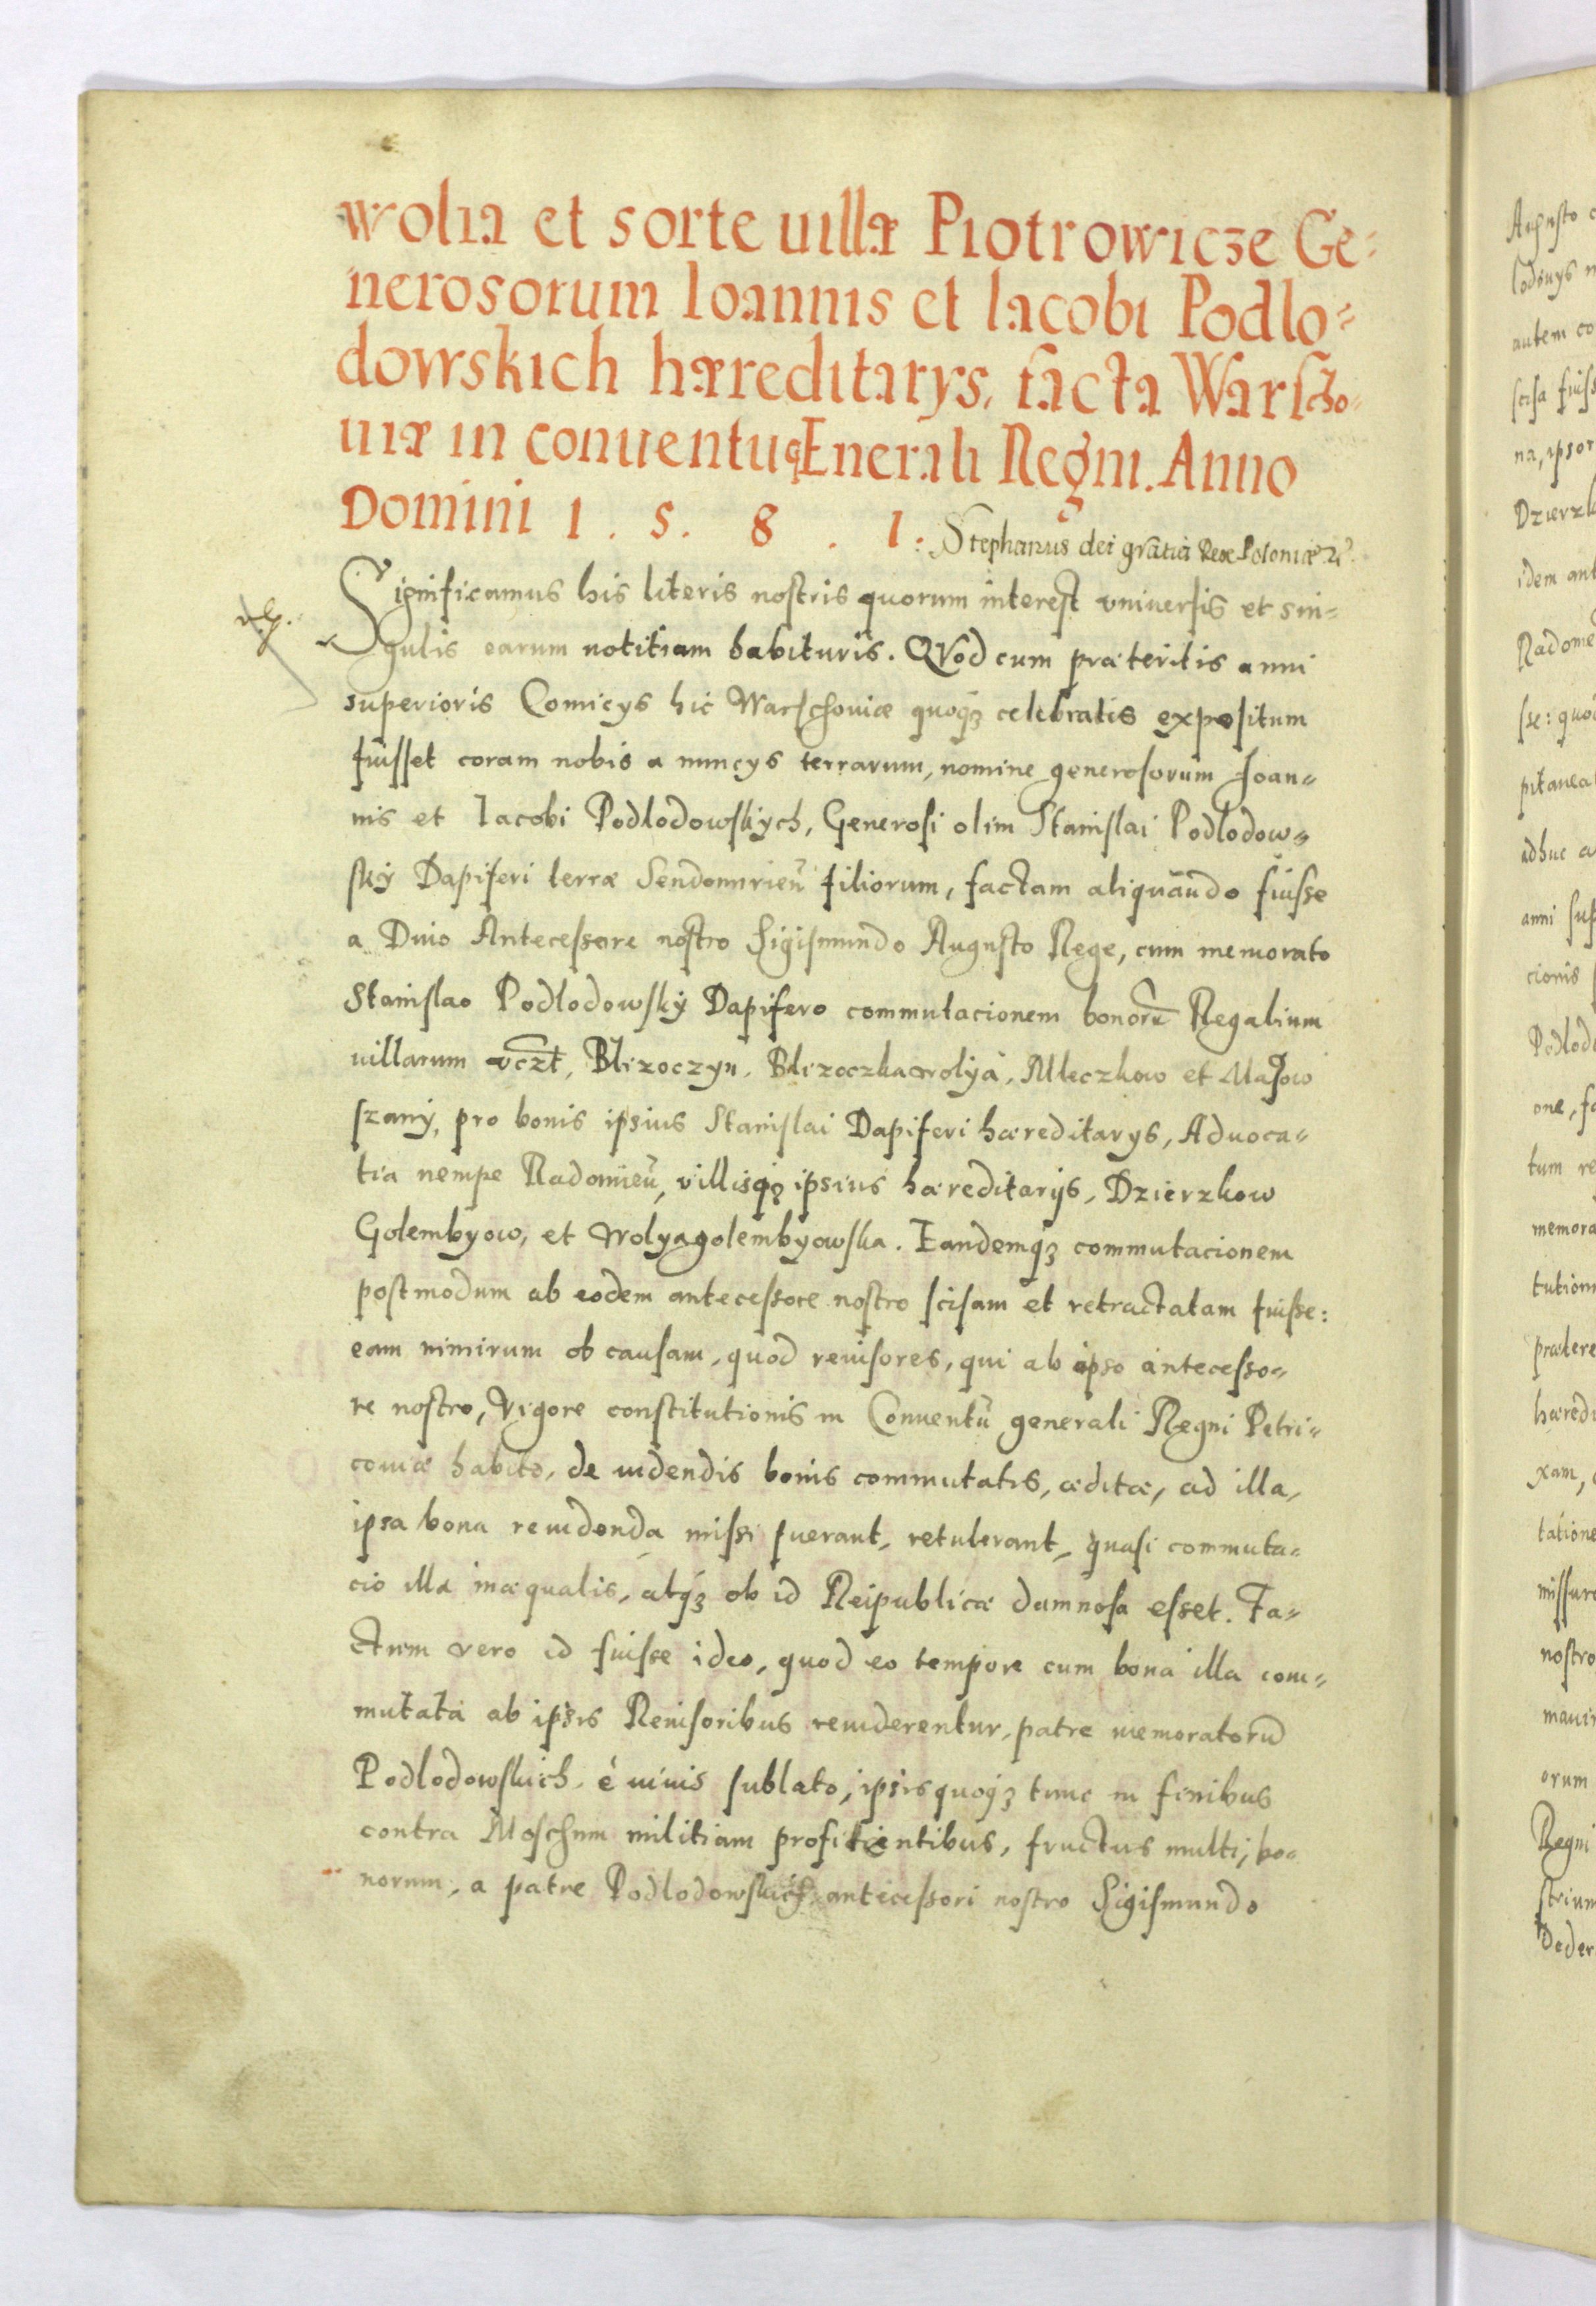 wolia et sorte uillæ Piotrowicze Ge-
nerosorum Ioannis et Iacobi Podlo-
dowskich hæreditarys, facta Warscho-
uiæ in conuentu gEnerali Regni. Anno
Domini 1. 5. 8. 1. Stephanus dei gratia Rex Poloniæ
Significamus his literis nostris quorum interest vniuersis et sin-
gulis earum notitiam habituris. QVod cum præteritis anni
superioris Comicys hic Warschouiæ quoqз celebratis expositum
fuisset coram nobis a nuncys terrarum, nomine generosorum Ioan-
nis et Iacobi Podlodowskych, Generosi olim Stanislai Podlodow-
sky Dapiferi terræ Sendomirieñ filiorum, factam aliquando fuisse
a Diuo Antecessore nostro Sigismundo Augusto Rege, cum memorato
Stanislao Podlodowsky Dapifero commutacionem bonorũ Regalium
uillarum vczt, Blizoczyn, Blizoczkawolya, Mleczkow et Maȷow
szany, pro bonis ipsius Stanislai Dapiferi hæreditarys, Aduoca-
tia nempe Radomieñ, villisqз ipsius hæreditarys, Dzierzkow
Golembyow, et Wolyagolembyowska. Eandemqз commutacionem
postmodum ab eodem antecessore nostro scisam et retractatam fuisse:
eam nimirum ob causam, quod reuisores, qui ab ipso antecesso-
re nostro, Vigore constitutionis in Conuentu generali Regni Petri-
couiæ habito, de uidendis bonis commutatis, æditæ, ad illa,
ipsa bona reuidenda missi fuerant, retulerant, quasi commuta-
cio illa inæqualis, atqз ob id Reipublicæ damnosa esset. Fa-
ctum vero id fuisse ideo, quod eo tempore cum bona illa com-
mutata ab ipsis Reuisoribus reuiderentur, patre memoratorũ
Podlodowskich è uiuis sublato, ipsis quoqз tunc in finibus
contra Moschum militiam profitientibus, fructus multi, bo-
norum, a patre Podlodowskich antecessori nostro Sigismundo